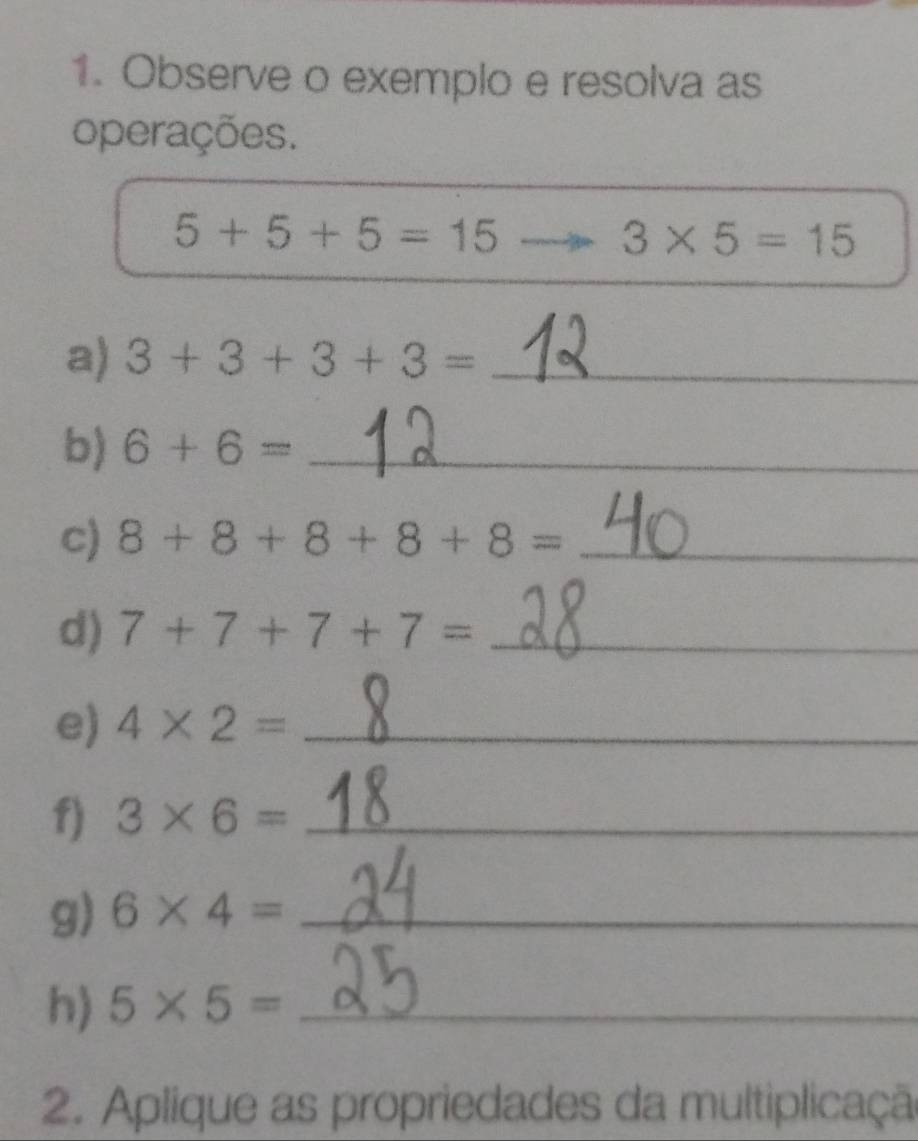 1. Observe o exemplo e resolva as
operações.
5 + 5 + 5 = 15 → 3 × 5 = 15
a) 3 + 3 + 3 + 3 = 12
b) 6 + 6 = 12
c) 8 + 8 + 8 + 8 + 8 = 40
d) 7 + 7 + 7 + 7 = 28
e) 4 × 2 = 8
f) 3 × 6 = 18
g) 6 × 4 = 24
h) 5 × 5 = 25
2. Aplique as propriedades da multiplicaçã